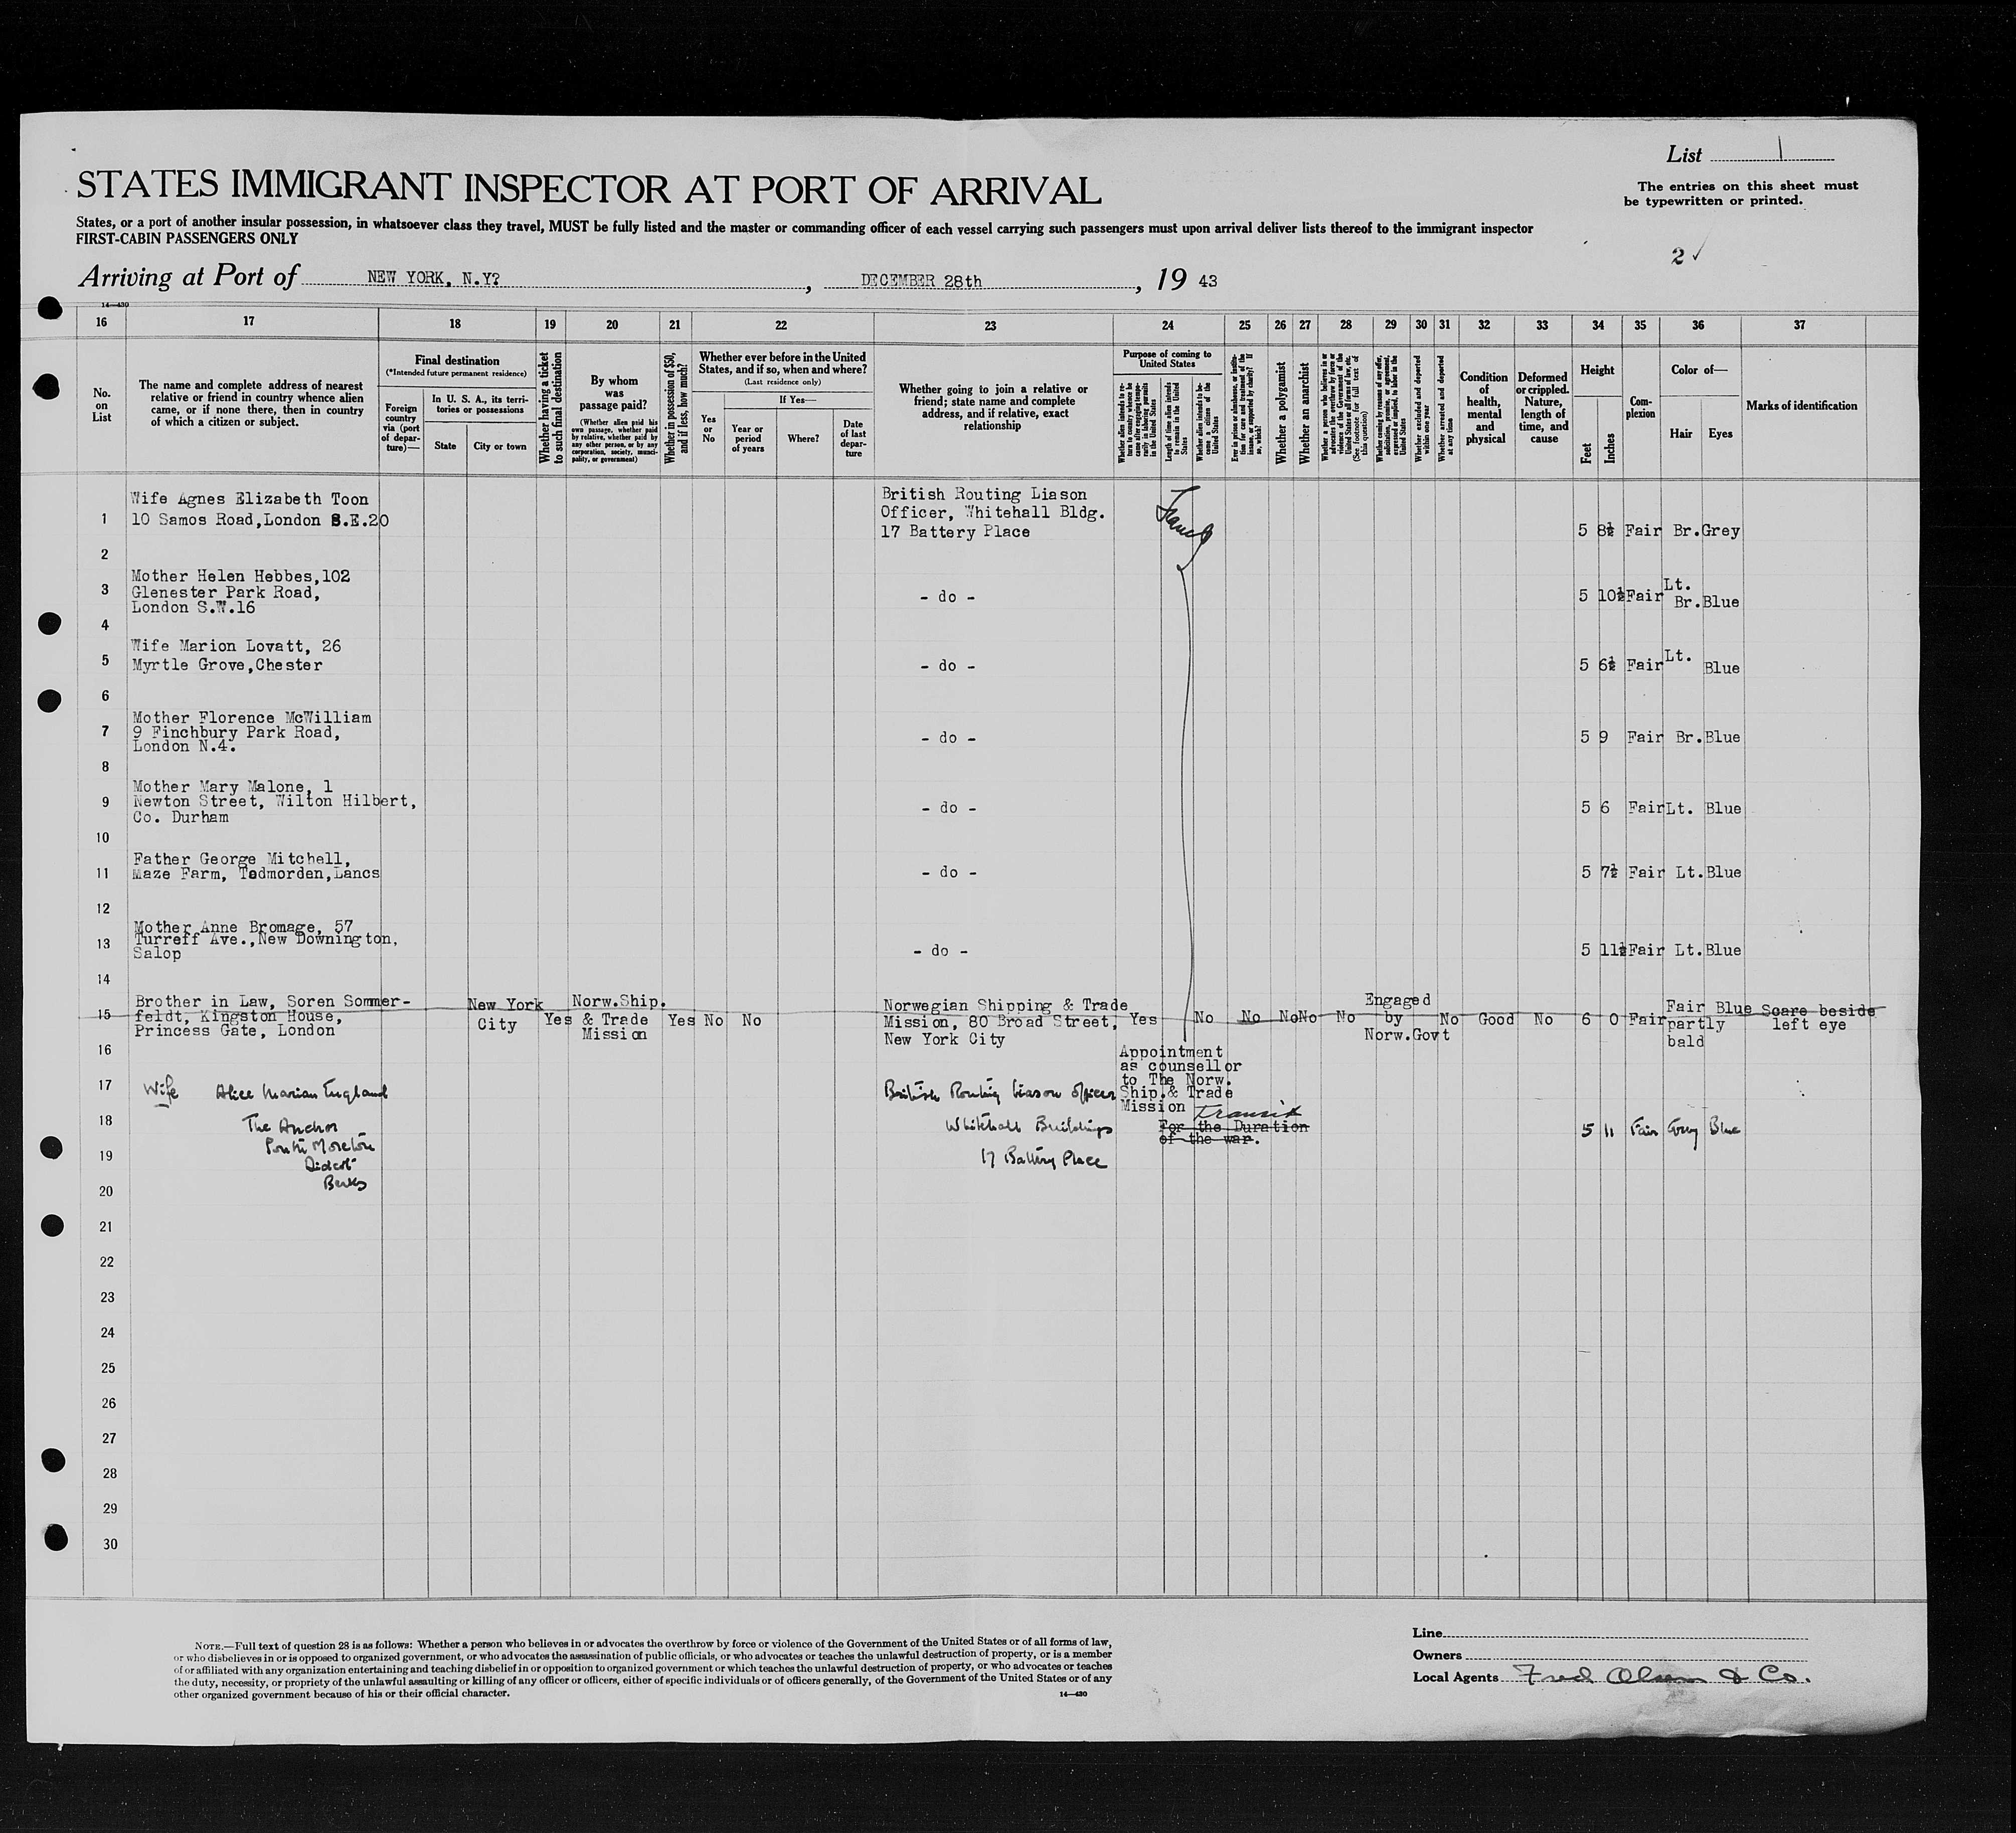 List 1
STATES IMMIGRANT INSPECTOR AT PORT OF ARRIVAL
The entries on this sheet must
be typewritten or printed.
States, or a port of another insular possession, in whatsoever class they travel, MUST be fully listed and the master or commanding officer of each vessel carrying such passengers must upon arrival deliver lists thereof to the immigrant inspector
FIRST-CABIN PASSENGERS ONLY
2 ✓
Arriving at Port of NEW YORK, N.Y? , DECEMBER 28th , 19 43
14—430
16 17 18 19 20 21 22 23 24 25 26 27 28 29 30 31 32 33 34 35 36 37
No.
on
List
The name and complete address of nearest
relative or friend in country whence alien
came, or if none there, then in country
of which a citizen or subject.
Final destination
(*Intended future permanent residence)
Foreign
country
via (port
of depar-
ture)—
In U. S. A., its terri-
tories or possessions
State
City or town
Whether having a ticket
to such final destination
By whom
was
passage paid?
(Whether alien paid his
own passage, whether paid
by relative, whether paid by
any other person, or by any
corporation, society, munici-
pality, or government)
Whether in possession of $50,
and if less, how much?
Whether ever before in the United
States, and if so, when and where?
(Last residence only)
Yes
or
No
If Yes—
Year or
period
of years
Where?
Date
of last
depar-
ture
Whether going to join a relative or
friend; state name and complete
address, and if relative, exact
relationship
Purpose of coming to
United States
Whether alien intends to re-
turn to country whence he
came after engaging tempo-
rarily in laboring pursuits
in the United States
Length of time alien intends
to remain in the United
States
Whether alien intends to be-
come a citizen of the
United States
Ever in prison or almshouse, or institu-
tion for care and treatment of the
insane, or supported by charity? If
so, which?
Whether a polygamist
Whether an anarchist
Whether a person who believes in or
advocates the overthrow by force or
violence of the Government of the
United States or all forms of law, etc.
(See footnote for full text of
this question)
Whether coming by reasons of any offer,
solicitation, promise, or agreement,
expressed or implied, to labor in the
United States
Whether excluded and deported
within one year
Whether arrested and deported
at any time
Condition
of
health,
mental
and
physical
Deformed
or crippled.
Nature,
length of
time, and
cause
Height
Feet
Inches
Com-
plexion
Color of—
Hair
Eyes
Marks of identification
Wife Agnes Elizabeth Toon
1 10 Samos Road,London S.E.20
British Routing Liason
Officer, Whitehall Bldg.
17 Battery Place
5 8½ Fair Br.Grey
2
Mother Helen Hebbes,102
3 Glenester Park Road,
London S.W.16
- do -
5 10½ Fair Lt.
Br.Blue
4
Wife Marion Lovatt, 26
5 Myrtle Grove,Chester
- do -
5 6½ Fair Lt. Blue
6
Mother Florence McWilliam
7 9 Finchbury Park Road,
London N.4.
- do -
5 9 Fair Br.Blue
8
Mother Mary Malone, 1
9 Newton Street, Wilton Hilbert,
Co. Durham
- do -
5 6 Fair Lt. Blue
10
Father George Mitchell,
11 Maze Farm, Todmorden,Lancs
- do -
5 7½ Fair Lt.Blue
12
Mother Anne Bromage, 57
13 Turreff Ave.,New Downington,
Salop
- do -
5 11½ Fair Lt.Blue
14
Brother in Law, Soren Sommer-
15 feldt, Kingston House,
Princess Gate, London
New York
City
Yes
Norw.Ship.
& Trade
Mission
Yes No No
Norwegian Shipping & Trade
Mission, 80 Broad Street,
New York City
Yes No No No No No
Engaged
by
Norw.Govt
No Good No 6 0 Fair
Fair Blue
partly
bald
Scare beside
left eye
16
Appointment
as counsellor
to The Norw.
Ship.& Trade
Mission
Transit
For the Duration
of the war.
17 Wife Alice Marian England
18 The Anchor
19 Moreton
Didcot
20 Berks
British Routing Liason Officer
Whitehall Buildings
17 Battery Place
5 11 Fair Grey Blue
21
22
23
24
25
26
27
28
29
30
NOTE.—Full text of question 28 is as follows: Whether a person who believes in or advocates the overthrow by force or violence of the Government of the United States or of all forms of law,
or who disbelieves in or is opposed to organized government, or who advocates the assassination of public officials, or who advocates or teaches the unlawful destruction of property, or is a member
of or affiliated with any organization entertaining and teaching disbelief in or opposition to organized government or which teaches the unlawful destruction of property, or who advocates or teaches
the duty, necessity, or propriety of the unlawful assaulting or killing of any officer or officers, either of specific individuals or of officers generally, of the Government of the United States or of any
other organized government because of his or their official character.
14—430
Line
Owners
Local Agents Fred Olsen & Co.